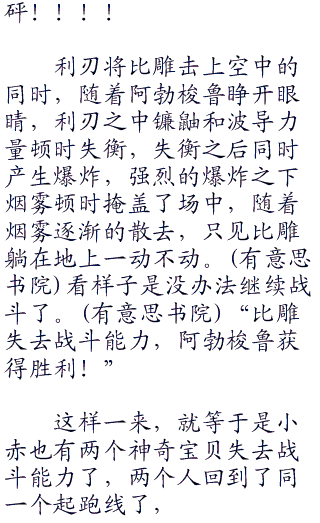 砰！！！！
利刃将比雕击上空中的
同时，随着阿勃梭鲁睁开眼
睛，利刃之中镰鼬和波导力
量顿时失衡，失衡之后同时
产生爆炸，强烈的爆炸之下
烟雾顿时掩盖了场中，随着
烟雾逐渐的散去，只见比雕
躺在地上一动不动。(有意思
书院)看样子是没办法继续战
斗了。(有意思书院)“比雕
失去战斗能力，阿勃梭鲁获
得胜利！”
这样一来，就等于是小
赤也有两个神奇宝贝失去战
斗能力了，两个人回到了同
一个起跑线了，